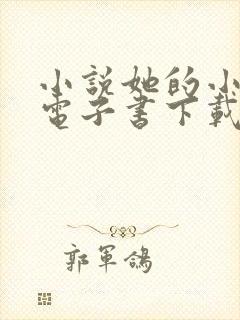 小說她的小
電子書下載
郭軍鴿